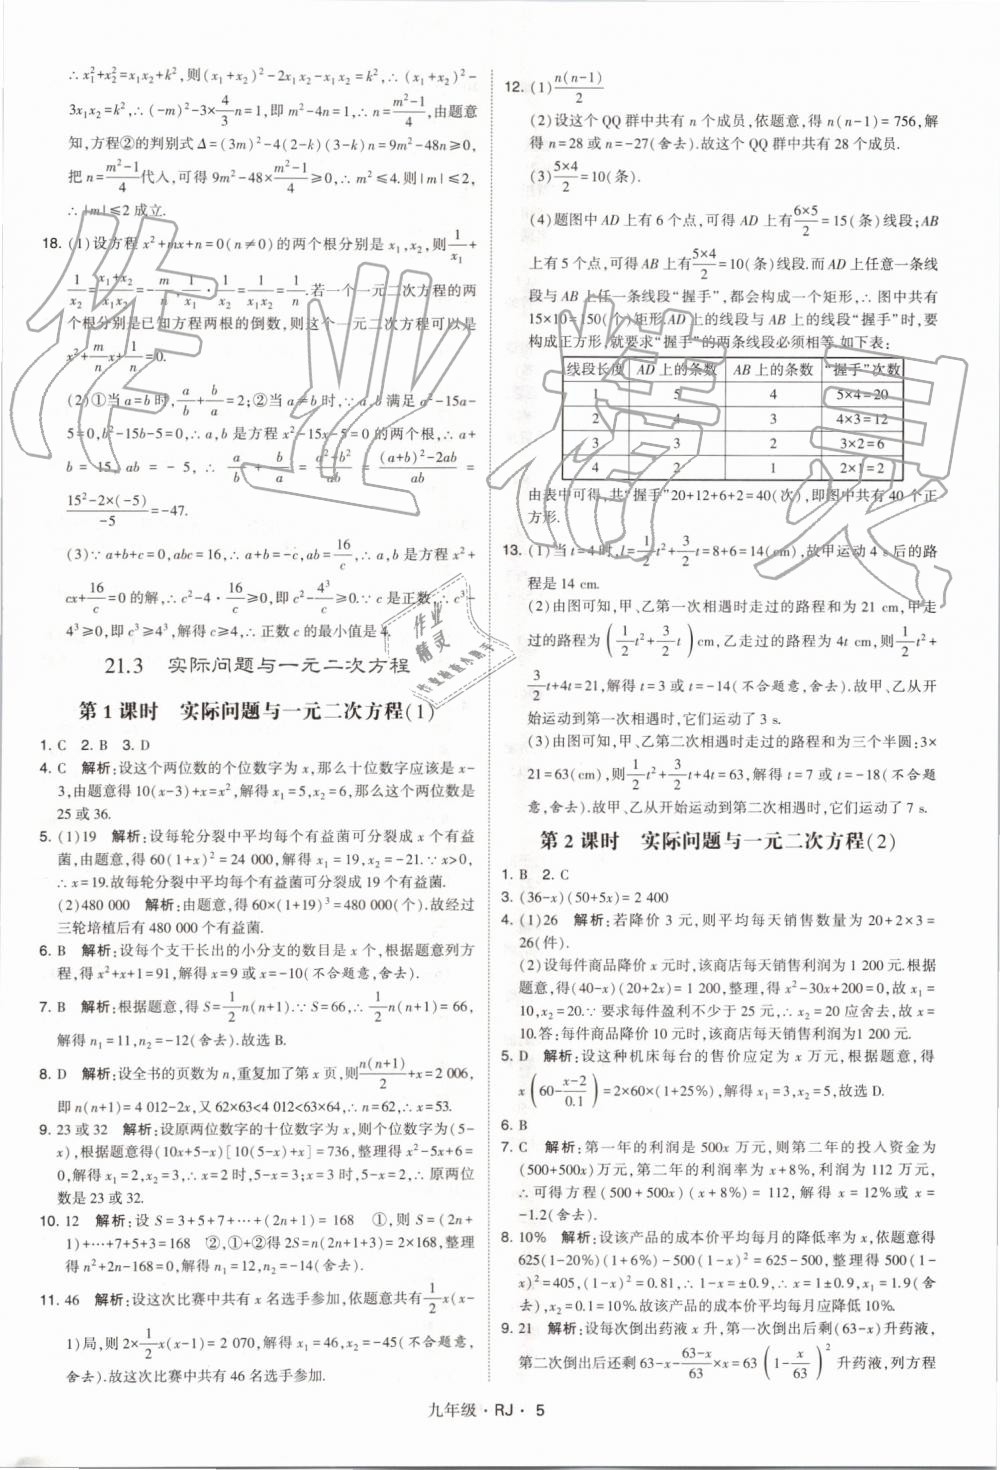 ∴x₁²+x₂²=x₁x₂+k²,则(x₁+x₂)²-2x₁x₂-x₁x₂=k²,∴(x₁+x₂)²-
3x₁x₂=k²,∴(-m)²-3×4/3n=1,即 m²-4n=1,∴n=(m²-1)/4,由题意
知,方程②的判别式 Δ=(3m)²-4(2-k)(3-k)n=9m²-48n≥0,
把 n=(m²-1)/4代入,可得 9m²-48×(m²-1)/4≥0,∴m²≤4,则|m|≤2,
∴|m|≤2 成立.
18. (1)设方程 x²+mx+n=0(n≠0)的两个根分别是 x₁,x₂,则1/x₁+
1/x₂=(x₁+x₂)/(x₁x₂)=-m/n,1/x₁·1/x₂=1/(x₁x₂)=1/n.若一个一元二次方程的两
个根分别是已知方程两根的倒数,则这个一元二次方程可以是
x²+m/n x+1/n=0.
(2)①当 a=b 时,a/b+b/a=2;②当 a≠b 时,∵a,b 满足 a²-15a-
5=0,b²-15b-5=0,∴a,b 是方程 x²-15x-5=0 的两个根,∴a+
b=15,ab=-5,∴a/b+b/a=(a²+b²)/ab=((a+b)²-2ab)/ab=
(15²-2×(-5))/-5=-47.
(3)∵a+b+c=0,abc=16,∴a+b=-c,ab=16/c,∴a,b 是方程 x²+
cx+16/c=0 的解,∴c²-4·16/c≥0,即 c²-4³/c≥0.∵c 是正数,∴c³-
4³≥0,即 c³≥4³,解得 c≥4,∴正数 c 的最小值是 4.
21.3 实际问题与一元二次方程
第 1 课时 实际问题与一元二次方程(1)
1. C 2. B 3. D
4. C 解析:设这个两位数的个位数字为 x,那么十位数字应该是 x-
3,由题意得 10(x-3)+x=x²,解得 x₁=5,x₂=6,那么这个两位数是
25 或 36.
5. (1)19 解析:设每轮分裂中平均每个有益菌可分裂成 x 个有益
菌,由题意,得 60(1+x)²=24 000,解得 x₁=19,x₂=-21.∵x>0,
∴x=19.故每轮分裂中平均每个有益菌可分裂成 19 个有益菌.
(2)480 000 解析:由题意,得 60×(1+19)³=480 000(个).故经过
三轮培植后有 480 000 个有益菌.
6. B 解析:设每个支干长出的小分支的数目是 x 个,根据题意列方
程,得 x²+x+1=91,解得 x=9 或 x=-10(不合题意,舍去).
7. B 解析:根据题意,得 S=1/2n(n+1).∵S=66,∴1/2n(n+1)=66,
解得 n₁=11,n₂=-12(舍去).故选 B.
8. D 解析:设全书的页数为 n,重复加了第 x 页,则n(n+1)/2+x=2 006,
即 n(n+1)=4 012-2x,又 62×63<4 012<63×64,∴n=62,∴x=53.
9. 23 或 32 解析:设原两位数字的十位数字为 x,则个位数字为(5-
x),根据题意,得(10x+5-x)[10(5-x)+x]=736,整理得 x²-5x+6=
0,解得 x₁=2,x₂=3,当 x=2 时,5-x=3;x=3 时,5-x=2,∴原两位
数是 23 或 32.
10. 12 解析:设 S=3+5+7+…+(2n+1)=168 ①,则 S=(2n+
1)+…+7+5+3=168 ②,①+②得 2S=n(2n+1+3)=2×168,整理
得 n²+2n-168=0,解得 n₁=12,n₂=-14(舍去).
11. 46 解析:设这次比赛中共有 x 名选手参加,依题意共有1/2x(x-
1)局,则 2×1/2x(x-1)=2 070,解得 x₁=46,x₂=-45(不合题意,
舍去).故这次比赛中共有 46 名选手参加.
12. (1)n(n-1)/2
(2)设这个 QQ 群中共有 n 个成员,依题意,得 n(n-1)=756,解
得 n=28 或 n=-27(舍去).故这个 QQ 群中共有 28 个成员.
(3)5×4/2=10(条).
(4)题图中 AD 上有 6 个点,可得 AD 上有6×5/2=15(条)线段;AB
上有 5 个点,可得 AB 上有5×4/2=10(条)线段.而 AD 上任意一条线
段与 AB 上任一条线段“握手”,都会构成一个矩形,∴图中共有
15×10=150(个)矩形.AD 上的线段与 AB 上的线段“握手”时,要
构成正方形,就要求“握手”的两条线段必须相等.如下表:
线段长度 AD 上的条数 AB 上的条数 “握手”次数
1 5 4 5×4=20
2 4 3 4×3=12
3 3 2 3×2=6
4 2 1 2×1=2
由表中可得,共“握手”20+12+6+2=40(次),即图中共有 40 个正
方形.
13. (1)当 t=4 时,l=1/2t²+3/2t=8+6=14(cm),故甲运动 4 s 后的路
程是 14 cm.
(2)由图可知,甲、乙第一次相遇时走过的路程和为 21 cm,甲走
过的路程为(1/2t²+3/2t)cm,乙走过的路程为 4t cm,则1/2t²+
3/2t+4t=21,解得 t=3 或 t=-14(不合题意,舍去).故甲、乙从开
始运动到第一次相遇时,它们运动了 3 s.
(3)由图可知,甲、乙第二次相遇时走过的路程和为三个半圆:3×
21=63(cm),则1/2t²+3/2t+4t=63,解得 t=7 或 t=-18(不合题
意,舍去).故甲、乙从开始运动到第二次相遇时,它们运动了 7 s.
第 2 课时 实际问题与一元二次方程(2)
1. B 2. C
3. (36-x)(50+5x)=2 400
4. (1)26 解析:若降价 3 元,则平均每天销售数量为 20+2×3=
26(件).
(2)设每件商品降价 x 元时,该商店每天销售利润为 1 200 元.根据
题意,得(40-x)(20+2x)=1 200,整理,得 x²-30x+200=0,故 x₁=
10,x₂=20.∵要求每件盈利不少于 25 元,∴x₂=20 应舍去,故 x=
10.答:每件商品降价 10 元时,该商店每天销售利润为1 200 元.
5. D 解析:设这种机床每台的售价应定为 x 万元,根据题意,得
x(60-(x-2)/0.1)=2×60×(1+25%),解得 x₁=3,x₂=5,故选 D.
6. B
7. C 解析:第一年的利润是 500x 万元,则第二年的投入资金为
(500+500x)万元,第二年的利润率为 x+8%,利润为 112 万元,
∴可得方程(500+500x)(x+8%)=112,解得 x=12%或 x=
-1.2(舍去).
8. 10% 解析:设该产品的成本价平均每月的降低率为 x,依题意得
625(1-20%)(1+6%)-500(1-x)²=625-500,整理得 500(1-
x)²=405,(1-x)²=0.81,∴1-x=±0.9,∴x=1±0.9,x₁=1.9(舍
去),x₂=0.1=10%.故该产品的成本价平均每月应降低 10%.
9. 21 解析:设每次倒出药液 x 升,第一次倒出后剩(63-x)升药液,
第二次倒出后还剩 63-x-(63-x)/63×x=63(1-x/63)² 升药液,列方程
九年级·RJ·5
作业精灵
作业精灵
作业检查小助手